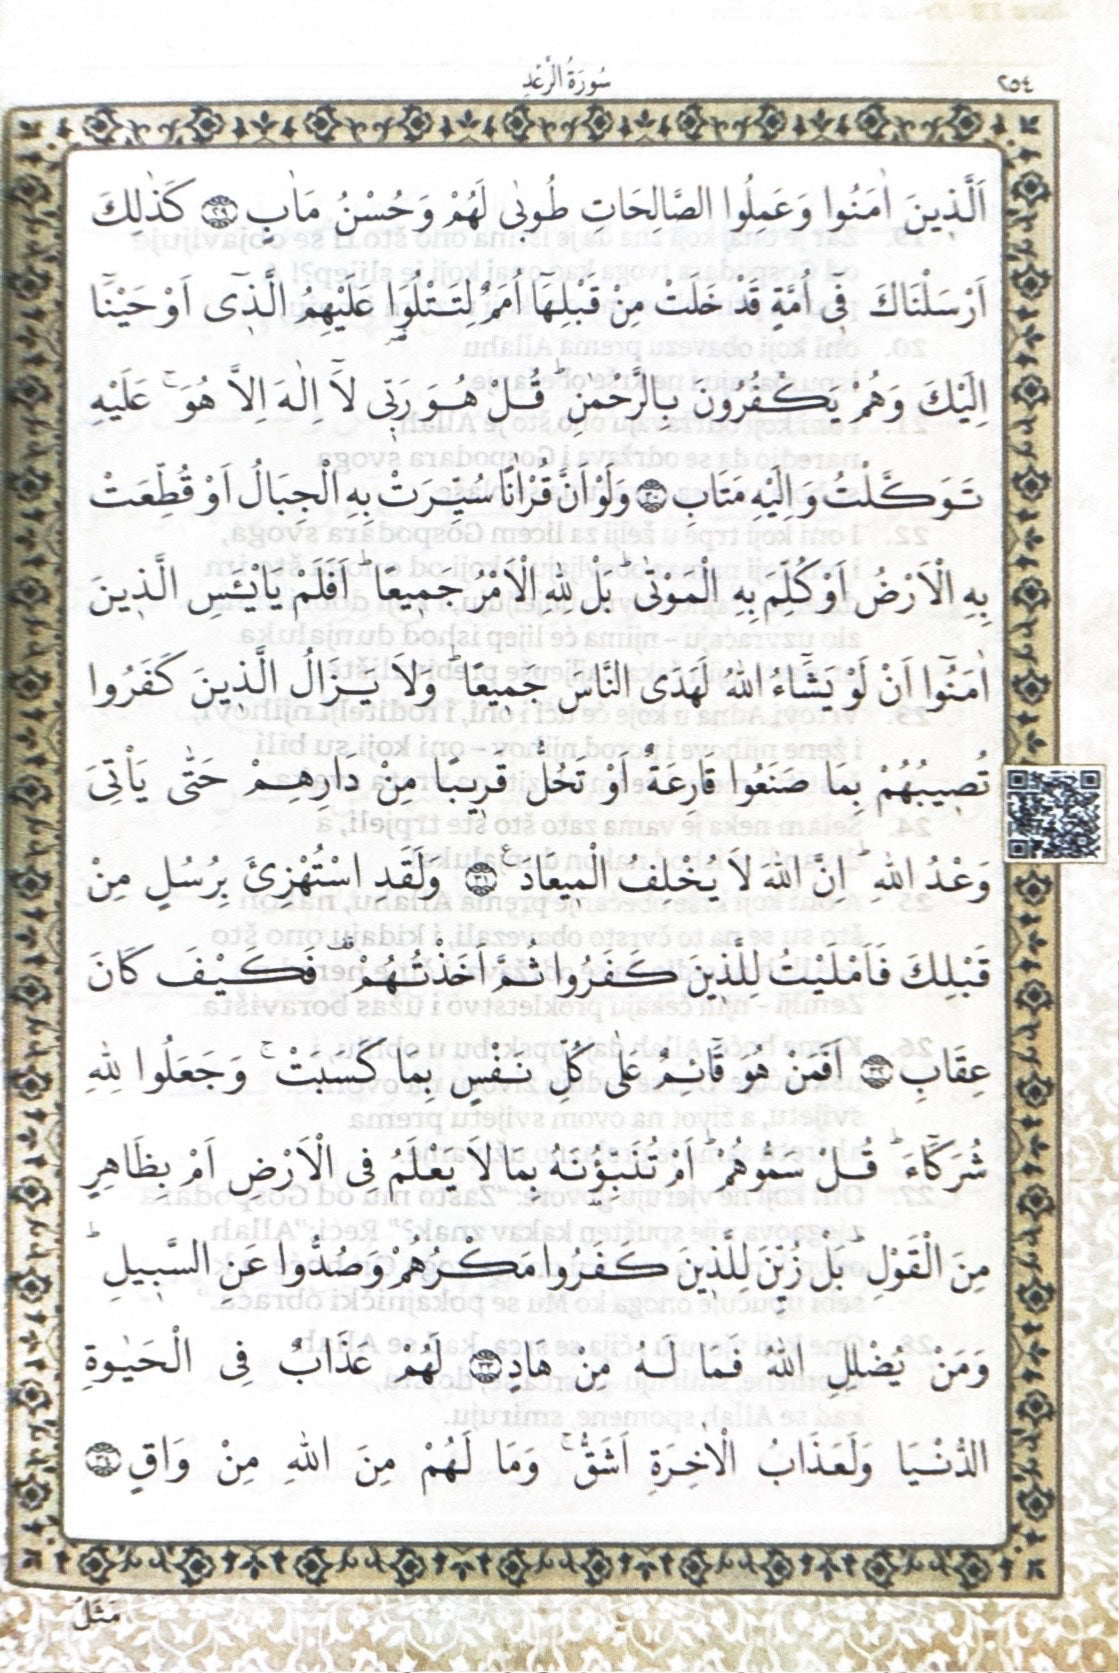 ٢٥٤
سُورَةُ الرَّعْدِ
اَلَّذ۪ينَ اٰمَنُوا وَعَمِلُوا الصَّالِحَاتِ طُوبٰى لَهُمْ وَحُسْنُ مَاٰبٍ ﴿٢٩﴾ كَذٰلِكَ
اَرْسَلْنَاكَ ف۪ٓى اُمَّةٍ قَدْ خَلَتْ مِنْ قَبْلِهَٓا اُمَمٌ لِتَتْلُوَا۬ عَلَيْهِمُ الَّذ۪ٓى اَوْحَيْنَٓا
اِلَيْكَ وَهُمْ يَكْفُرُونَ بِالرَّحْمٰنِۜ قُلْ هُوَ رَبّ۪ى لَٓا اِلٰهَ اِلَّا هُوَۚ عَلَيْهِ
تَوَكَّلْتُ وَاِلَيْهِ مَتَابِ ﴿٣٠﴾ وَلَوْ اَنَّ قُرْاٰنًا سُيِّرَتْ بِهِ الْجِبَالُ اَوْ قُطِّعَتْ
بِهِ الْاَرْضُ اَوْ كُلِّمَ بِهِ الْمَوْتٰىۜ بَلْ لِلّٰهِ الْاَمْرُ جَم۪يعًاۜ اَفَلَمْ يَايْـَٔسِ الَّذ۪ينَ
اٰمَنُٓوا اَنْ لَوْ يَشَٓاءُ اللّٰهُ لَهَدَى النَّاسَ جَم۪يعًاۜ وَلَا يَزَالُ الَّذ۪ينَ كَفَرُوا
تُص۪يبُهُمْ بِمَا صَنَعُوا قَارِعَةٌ اَوْ تَحُلُّ قَر۪يبًا مِنْ دَارِهِمْ حَتّٰى يَاْتِىَ
وَعْدُ اللّٰهِۜ اِنَّ اللّٰهَ لَا يُخْلِفُ الْم۪يعَادَ۟ ﴿٣١﴾ وَلَقَدِ اسْتُهْزِئَ بِرُسُلٍ مِنْ
قَبْلِكَ فَاَمْلَيْتُ لِلَّذ۪ينَ كَفَرُوا ثُمَّ اَخَذْتُهُمْ۠ فَكَيْفَ كَانَ
عِقَابِ ﴿٣٢﴾ اَفَمَنْ هُوَ قَٓائِمٌ عَلٰى كُلِّ نَفْسٍ بِمَا كَسَبَتْۚ وَجَعَلُوا لِلّٰهِ
شُرَكَٓاءَۜ قُلْ سَمُّوهُمْۜ اَمْ تُنَبِّؤُ۫نَهُ بِمَا لَا يَعْلَمُ فِى الْاَرْضِ اَمْ بِظَاهِرٍ
مِنَ الْقَوْلِۜ بَلْ زُيِّنَ لِلَّذ۪ينَ كَفَرُوا مَكْرُهُمْ وَصُدُّوا عَنِ السَّب۪يلِۜ
وَمَنْ يُضْلِلِ اللّٰهُ فَمَا لَهُ مِنْ هَادٍ ﴿٣٣﴾ لَهُمْ عَذَابٌ فِى الْحَيٰوةِ
الدُّنْيَا وَلَعَذَابُ الْاٰخِرَةِ اَشَقُّۚ وَمَا لَهُمْ مِنَ اللّٰهِ مِنْ وَاقٍ ﴿٣٤﴾
مَثَلُ